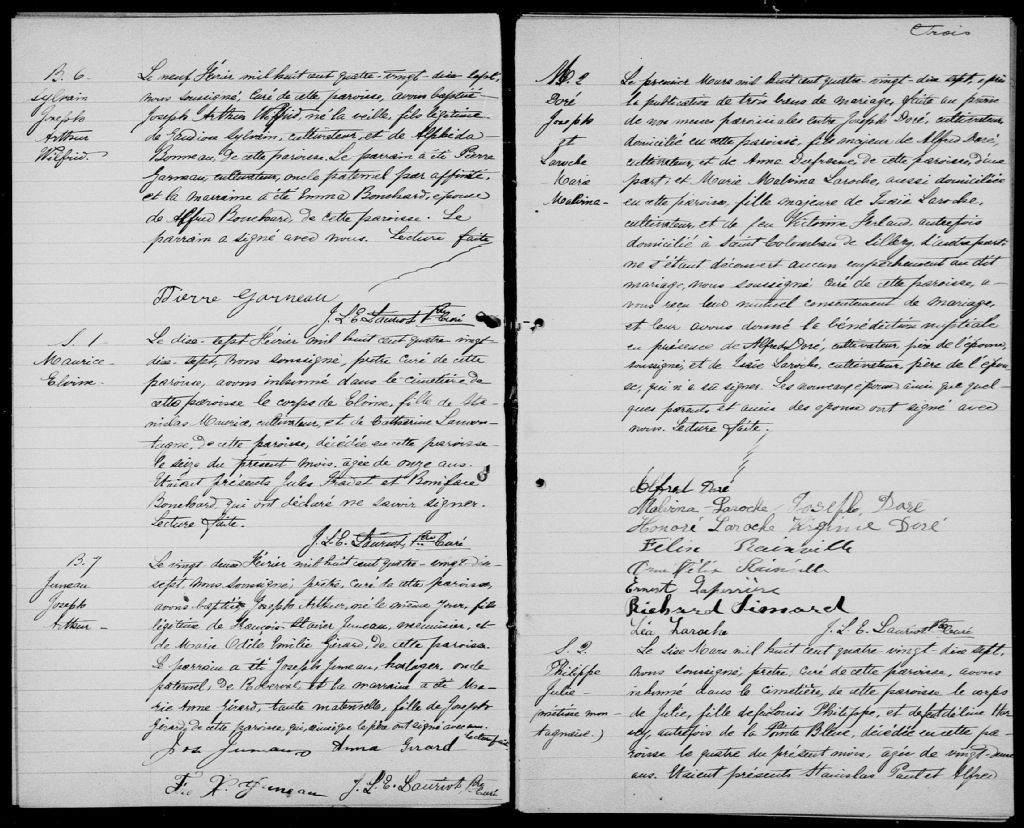 B. 6
Sylvain
Joseph
Arthur
Wilfrid.
Le neuf Février mil huit cent quatre-vingt-dix-sept,
nous soussigné, curé de cette paroisse, avons baptisé
Joseph Arthur Wilfrid, né la veille, fils légitime
de Sylvain, cultivateur, et de Alphéda
Bonneau, de cette paroisse. Le parrain a été Pierre
Garneau, cultivateur, oncle paternel par affinité
et la marraine a été Emma Bouchard, épouse
de Alfred Bouchard, de cette paroisse. Le
parrain a signé avec nous. Lecture faite
Pierre Garneau
J. L. E. Lauriot Ptre Curé
S. 1
Maurice
Eloïse.
Le dix-sept Février mil huit cent quatre-vingt
dix-sept, Nous soussigné, prêtre curé de cette
paroisse, avons inhumé dans le cimetière de
cette paroisse le corps de fille de Sta-
nislas Maurice, cultivateur, et de Catherine
de cette paroisse, décédée en cette paroisse
le seize du présent mois, agée de onze ans.
Etaient présents Jules et Boniface
Bouchard, qui ont déclaré ne savoir signer.
Lecture faite.
J. L. E. Lauriot Ptre Curé
B. 7
Juneau
Joseph
Arthur
Le vingt deux Février mil huit cent quatre-vingt dix
sept, Nous soussigné, prêtre, curé de cette paroisse,
avons baptisé Joseph Arthur, né le même jour, fils
légitime de François Xavier Juneau, menuisier, et
de Marie Odile Emilie Girard, de cette paroisse.
Le parrain a été Joseph Juneau, horloger, oncle
paternel, de Roberval, et la marraine a été Ma-
rie Anne Girard, tante maternelle, fille de Joseph
Girard, de cette paroisse, qui, ainsi que le père ont signé avec nous.
Lecture faite
Jos Juneau Anna Girard
F. X. Juneau J. L. E. Lauriot, Ptre Curé
Trois
M. 2
Doré
Joseph
et
Laroche
Marie
Malvina
Le premier Mars mil huit cent quatre-vingt-dix sept, après
la publication de trois bans de mariage, faite au prône
de nos messes paroissiales entre Joseph Doré, cultivateur,
domicilié en cette paroisse, fils majeur de Alfred Doré,
cultivateur, et de Anna Dufresne, de cette paroisse, d'une
part; et Marie Malvina Laroche, aussi domiciliée
en cette paroisse, fille majeure de Isaïe Laroche,
cultivateur, et de feu Victorine Ferland, autrefois
domicilié à Saint Colomban de Sillery, d'autre part:
ne s'étant découvert aucun empêchement au dit
mariage, nous soussigné curé de cette paroisse, a-
vons reçu leur mutuel consentement de mariage,
et leur avons donné la bénédiction nuptiale
en présence de Alfred Doré, cultivateur père de l'époux,
soussigné, et de Isaïe Laroche, cultivateur, père de l'épou-
se, qui n'a su signer. Les nouveaux époux ainsi que quel-
ques parents et amis des époux ont signé avec
nous. Lecture faite.
Alfred Doré
Malvina Laroche Joseph Doré
Honoré Laroche Virginie Doré
Félix Rainville
Félix Rainville
Ernest Laferrière
Richard Simard
Léa Laroche J. L. E. Lauriot Ptre Curé
S. 2
Philippe
Julie
(métisse mon-
tagnaise.)
Le six Mars mil huit cent quatre vingt dix sept,
Nous soussigné, prêtre, curé de cette paroisse, avons
inhumé dans le cimetière, de cette paroisse le corps
de Julie, fille de feu Louis Philippe, et de feu
autrefois de la Pointe Bleue, décédée en cette pa-
roisse le quatre du présent mois, agée de vingt-deux
ans. Etaient présents Stanislas Paul et Alfred